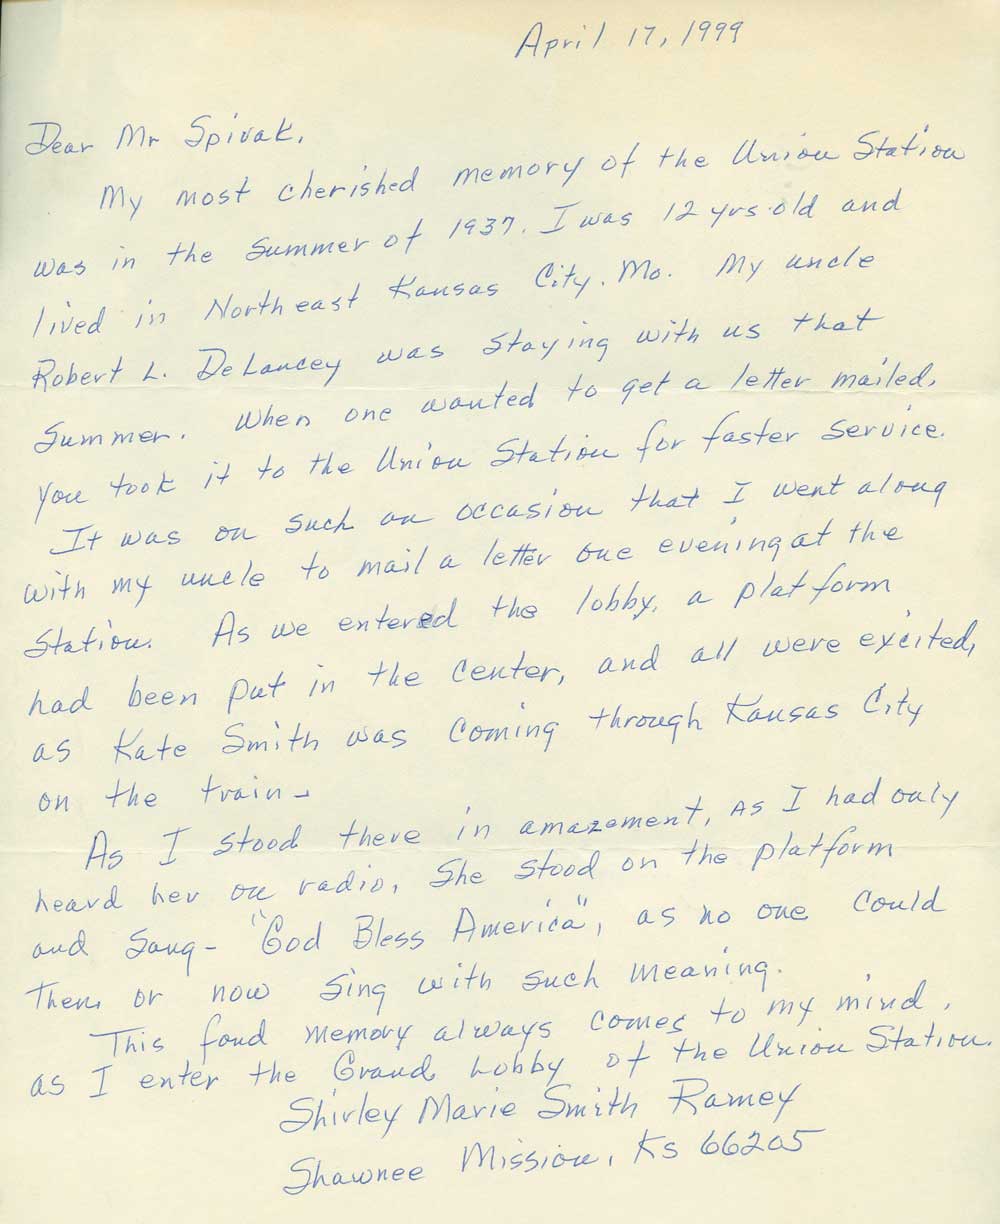 April 17, 1999
Dear Mr Spivak,
My most cherished memory of the Union Station
was in the Summer of 1937. I was 12 yrs old and
lived in Northeast Kansas City, Mo. My uncle
Robert L. DeLancey was staying with us that
Summer. When one wanted to get a letter mailed,
you took it to the Union Station for faster service.
It was on such an occasion that I went along
with my uncle to mail a letter one evening at the
Station. As we entered the lobby, a platform
had been put in the center, and all were excited,
as Kate Smith was coming through Kansas City
on the train-
As I stood there in amazement, as I had only
heard her on radio, she stood on the platform
and sang- "God Bless America", as no one could
then, or now sing with such meaning.
This fond memory always comes to my mind,
as I enter the Grand Lobby of the Union Station.
Shirley Marie Smith Ramey
Shawnee Mission, Ks 66205